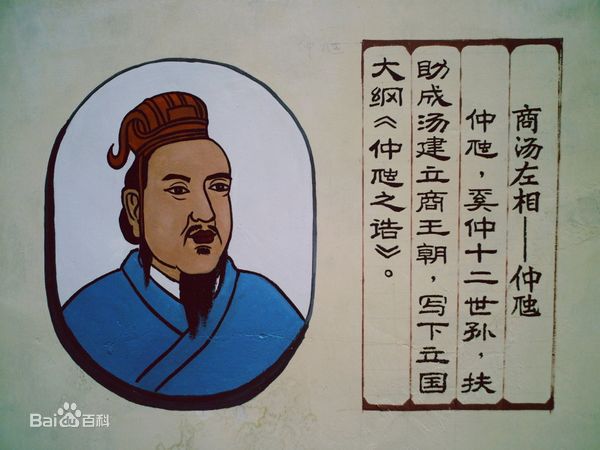 商汤左相——仲虺
仲虺，奚仲十二世孙，扶
助成汤建立商王朝，写下立国
大纲《仲虺之诰》。
Bai百科